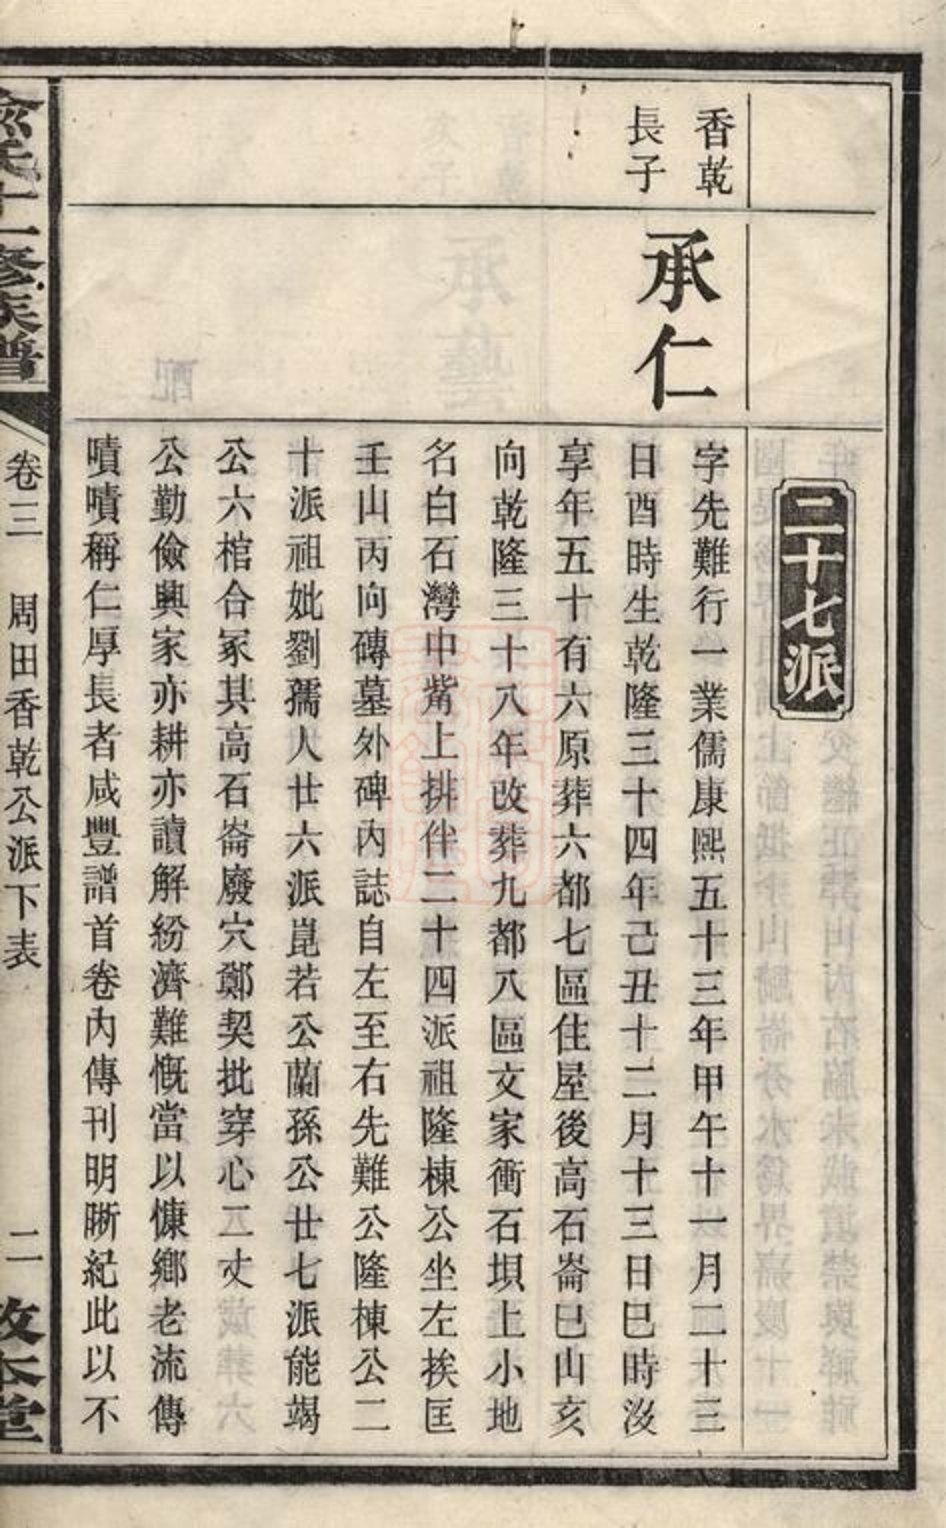 二十七派
香乾
長子
承仁
字先難行一業儒康熙五十三年甲午十一月二十三
日酉時生乾隆三十四年己丑十二月十三日巳時沒
享年五十有六原葬六都七區住屋後高石崙巳山亥
向乾隆三十八年改葬九都八區文家衝石垻上小地
名白石灣中觜上排伴二十四派祖隆棟公坐左挨匡
壬山丙向磚墓外碑內誌自左至右先難公隆棟公二
十派祖妣劉孺人廿六派崑若公蘭孫公廿七派能竭
公六棺合冢其高石崙廢穴鄭契批穿心二丈
公勤儉興家亦耕亦讀解紛濟難慨當以慷鄉老流傳
嘖嘖稱仁厚長者咸豐譜首卷內傳刊明晰紀此以不
俞氏十一修族譜
卷三
周田香乾公派下表
二
本堂